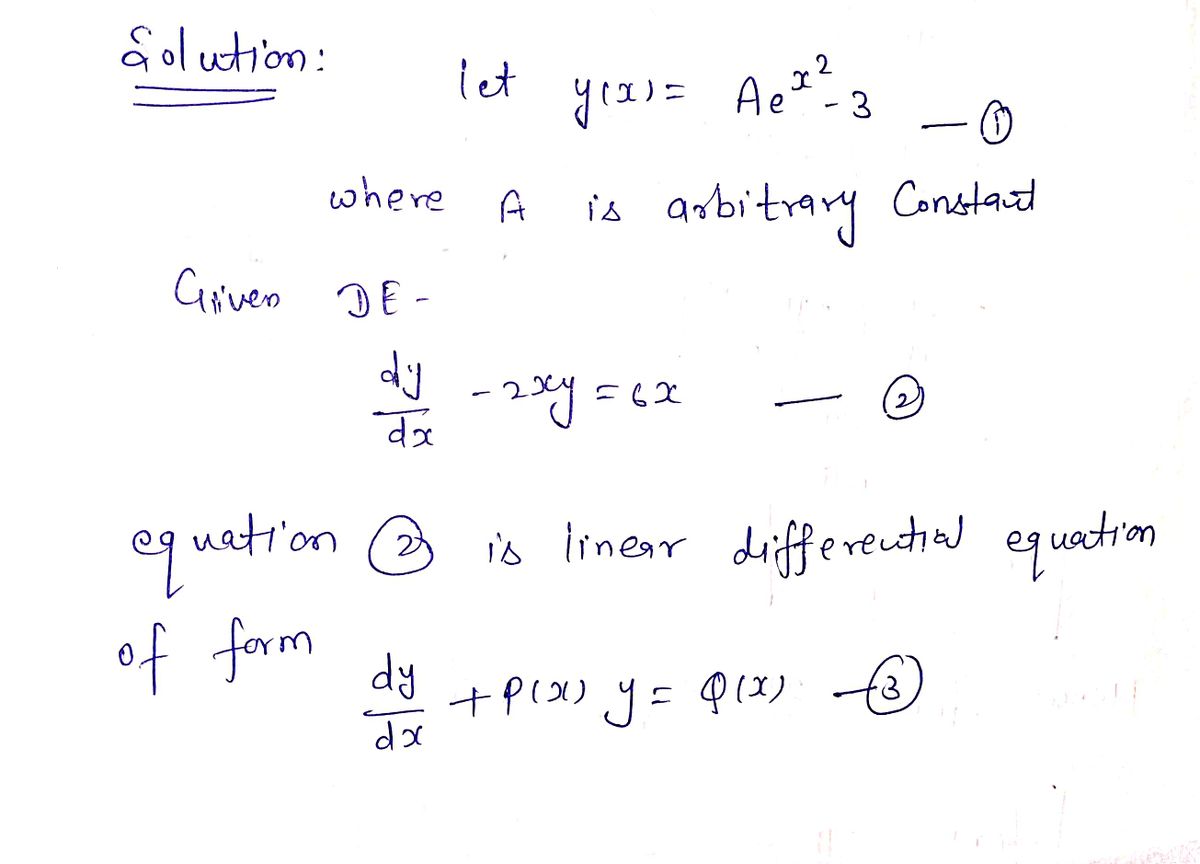 Solution:
let y(x) = Ae^x² - 3 — ①
where A is arbitrary Constant
Given DE -
dy/dx - 2xy = 6x — ②
equation ② is linear differential equation
of form
dy/dx + P(x) y = Q(x) — ③